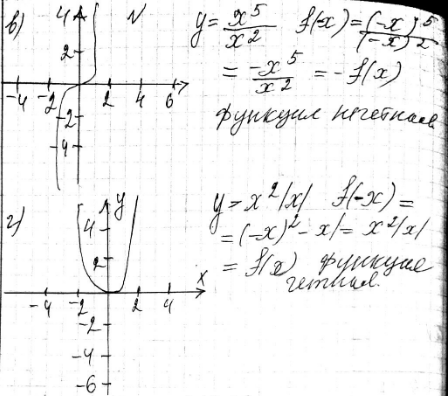 в)
4
2
-4 -2 2 4 6
-2
-4
y = x⁵/x² f(-x) = (-x)⁵/(-x)²
= -x⁵/x² = -f(x)
функция нечетная
г)
y
4
2
x
-4 -2 2 4
-2
-4
-6
y = x²|x| f(-x) =
= (-x)²|-x| = x²|x|
= f(x) функция
четная.